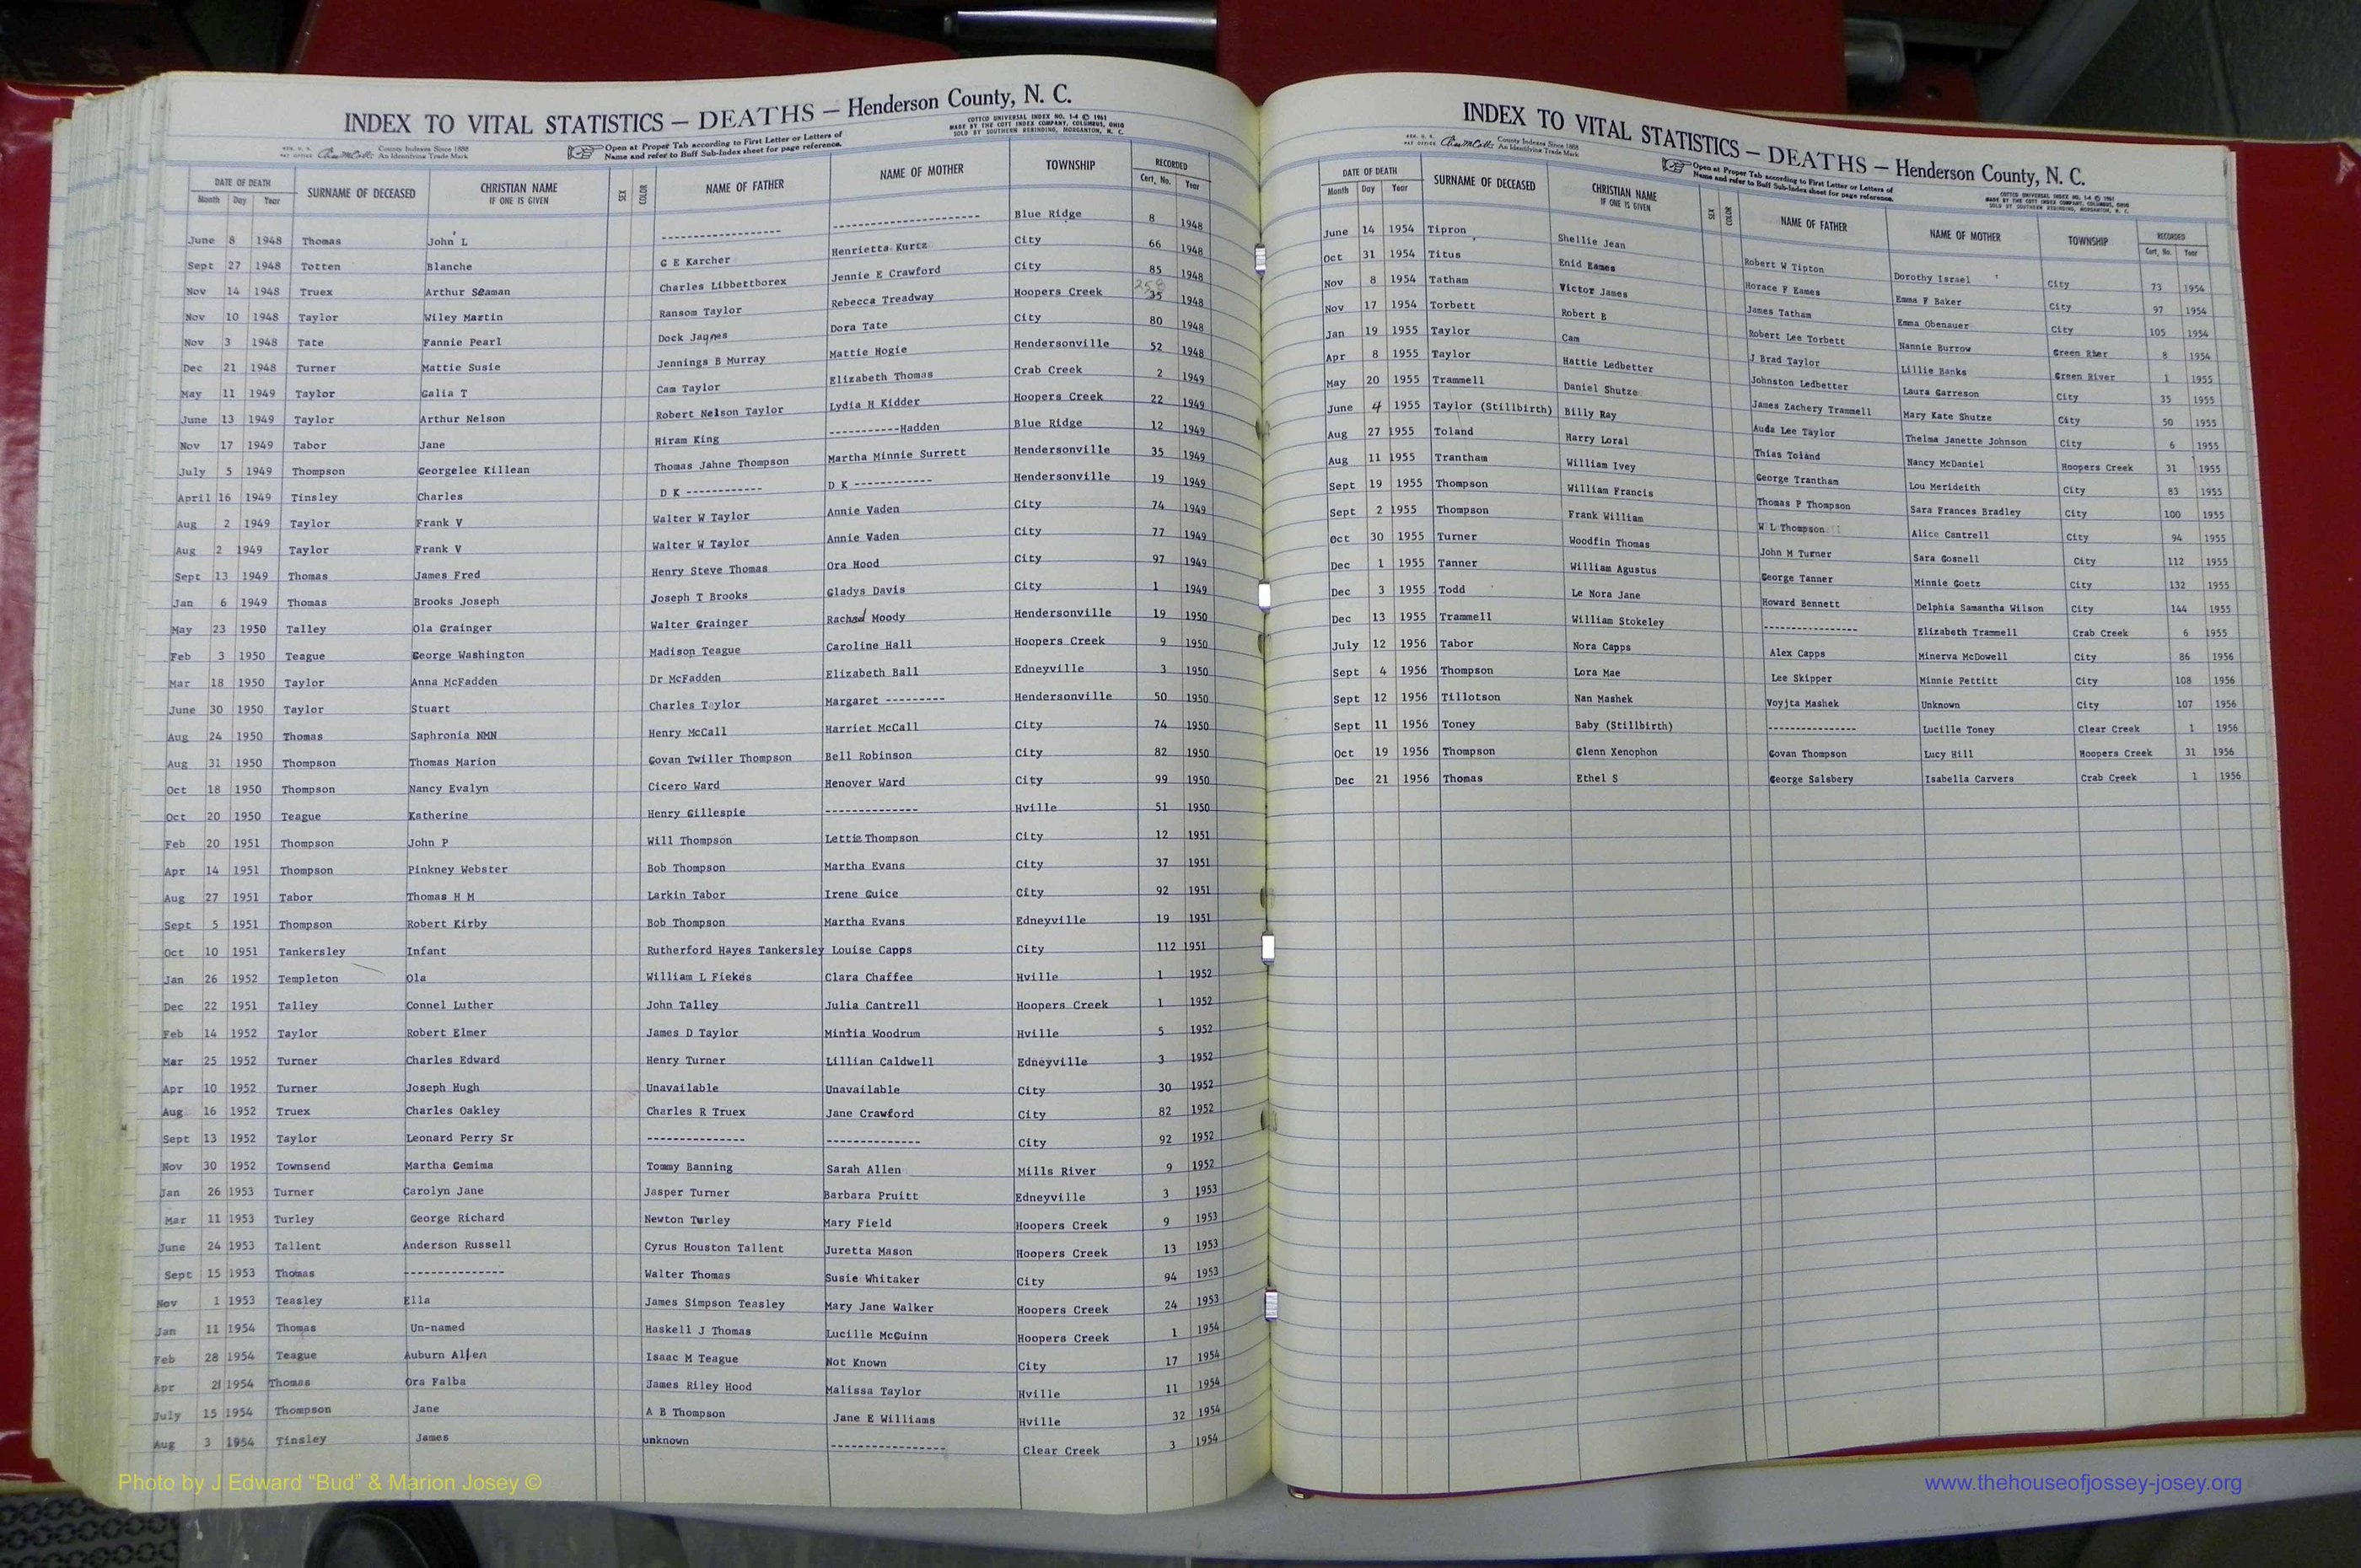 INDEX TO VITAL STATISTICS — DEATHS — Henderson County, N. C.
COTTCO UNIVERSAL INDEX NO. 1-4 © 1961
MADE BY THE COTT INDEX COMPANY, COLUMBUS, OHIO
SOLD BY SOUTHERN REBINDING, MORGANTON, N. C.
County Indexes Since 1888
An Identifying Trade Mark
Open at Proper Tab according to First Letter or Letters of
Name and refer to Buff Sub-Index sheet for page reference.
DATE OF DEATH SURNAME OF DECEASED CHRISTIAN NAME SEX COLOR NAME OF FATHER NAME OF MOTHER TOWNSHIP RECORDED
Month Day Year IF ONE IS GIVEN Cert. No. Year
June 8 1948 Thomas John L -------------------- -------------------- Blue Ridge 8 1948
Sept 27 1948 Totten Blanche G E Karcher Henrietta Kurtz City 66 1948
Nov 14 1948 Truex Arthur Seaman Charles Libbettborex Jennie E Crawford City 85 1948
Nov 10 1948 Taylor Wiley Martin Ransom Taylor Rebecca Treadway Hoopers Creek 258 35 1948
Nov 3 1948 Tate Fannie Pearl Dock Jaynes Dora Tate City 80 1948
Dec 21 1948 Turner Mattie Susie Jennings B Murray Mattie Hogie Hendersonville 52 1948
May 11 1949 Taylor Galia T Cam Taylor Elizabeth Thomas Crab Creek 2 1949
June 13 1949 Taylor Arthur Nelson Robert Nelson Taylor Lydia H Kidder Hoopers Creek 22 1949
Nov 17 1949 Tabor Jane Hiram King ----------Hadden Blue Ridge 12 1949
July 5 1949 Thompson Georgelee Killean Thomas Jahne Thompson Martha Minnie Surrett Hendersonville 35 1949
April 16 1949 Tinsley Charles D K ------------ D K ------------ Hendersonville 19 1949
Aug 2 1949 Taylor Frank V Walter W Taylor Annie Vaden City 74 1949
Aug 2 1949 Taylor Frank V Walter W Taylor Annie Vaden City 77 1949
Sept 13 1949 Thomas James Fred Henry Steve Thomas Ora Hood City 97 1949
Jan 6 1949 Thomas Brooks Joseph Joseph T Brooks Gladys Davis City 1 1949
May 23 1950 Talley Ola Grainger Walter Grainger Rachael Moody Hendersonville 19 1950
Feb 3 1950 Teague George Washington Madison Teague Caroline Hall Hoopers Creek 9 1950
Mar 18 1950 Taylor Anna McFadden Dr McFadden Elizabeth Ball Edneyville 3 1950
June 30 1950 Taylor Stuart Charles Taylor Margaret --------- Hendersonville 50 1950
Aug 24 1950 Thomas Saphronia NMN Henry McCall Harriet McCall City 74 1950
Aug 31 1950 Thompson Thomas Marion Govan Twiller Thompson Bell Robinson City 82 1950
Oct 18 1950 Thompson Nancy Evalyn Cicero Ward Henover Ward City 99 1950
Oct 20 1950 Teague Katherine Henry Gillespie -------------- Hville 51 1950
Feb 20 1951 Thompson John P Will Thompson Lettie Thompson City 12 1951
Apr 14 1951 Thompson Pinkney Webster Bob Thompson Martha Evans City 37 1951
Aug 27 1951 Tabor Thomas H M Larkin Tabor Irene Guice City 92 1951
Sept 5 1951 Thompson Robert Kirby Bob Thompson Martha Evans Edneyville 19 1951
Oct 10 1951 Tankersley Infant Rutherford Hayes Tankersley Louise Capps City 112 1951
Jan 26 1952 Templeton Ola William L Fiekes Clara Chaffee Hville 1 1952
Dec 22 1951 Talley Connel Luther John Talley Julia Cantrell Hoopers Creek 1 1952
Feb 14 1952 Taylor Robert Elmer James D Taylor Mintia Woodrum Hville 5 1952
Mar 25 1952 Turner Charles Edward Henry Turner Lillian Caldwell Edneyville 3 1952
Apr 10 1952 Turner Joseph Hugh Unavailable Unavailable City 30 1952
Aug 16 1952 Truex Charles Oakley Charles R Truex Jane Crawford City 82 1952
Sept 13 1952 Taylor Leonard Perry Sr --------------- -------------- City 92 1952
Nov 30 1952 Townsend Martha Gemima Tommy Banning Sarah Allen Mills River 9 1952
Jan 26 1953 Turner Carolyn Jane Jasper Turner Barbara Pruitt Edneyville 3 1953
Mar 11 1953 Turley George Richard Newton Turley Mary Field Hoopers Creek 9 1953
June 24 1953 Tallent Anderson Russell Cyrus Houston Tallent Juretta Mason Hoopers Creek 13 1953
Sept 15 1953 Thomas --------------- Walter Thomas Susie Whitaker City 94 1953
Nov 1 1953 Teasley Ella James Simpson Teasley Mary Jane Walker Hoopers Creek 24 1953
Jan 11 1954 Thomas Un-named Haskell J Thomas Lucille McGuinn Hoopers Creek 1 1954
Feb 28 1954 Teague Auburn Allen Isaac M Teague Not Known City 17 1954
Apr 21 1954 Thomas Ora Falba James Riley Hood Malissa Taylor Hville 11 1954
July 15 1954 Thompson Jane A B Thompson Jane E Williams Hville 32 1954
Aug 3 1954 Tinsley James unknown ----------------- Clear Creek 3 1954
INDEX TO VITAL STATISTICS — DEATHS — Henderson County, N. C.
County Indexes Since 1888
An Identifying Trade Mark
Open at Proper Tab according to First Letter or Letters of
Name and refer to Buff Sub-Index sheet for page reference.
COTTCO UNIVERSAL INDEX NO. 1-4 © 1961
MADE BY THE COTT INDEX COMPANY, COLUMBUS, OHIO
SOLD BY SOUTHERN REBINDING, MORGANTON, N. C.
DATE OF DEATH SURNAME OF DECEASED CHRISTIAN NAME SEX COLOR NAME OF FATHER NAME OF MOTHER TOWNSHIP RECORDED
Month Day Year IF ONE IS GIVEN Cert. No. Year
June 14 1954 Tipron Shellie Jean Robert W Tipton Dorothy Israel City 73 1954
Oct 31 1954 Titus Enid Eames Horace F Eames Emma F Baker City 97 1954
Nov 8 1954 Tatham Victor James James Tatham Emma Obenauer City 105 1954
Nov 17 1954 Torbett Robert B Robert Lee Torbett Nannie Burrow Green River 8 1954
Jan 19 1955 Taylor Cam J Brad Taylor Lillie Banks Green River 1 1955
Apr 8 1955 Taylor Hattie Ledbetter Johnston Ledbetter Laura Garreson City 35 1955
May 20 1955 Trammell Daniel Shutze James Zachery Trammell Mary Kate Shutze City 50 1955
June 4 1955 Taylor (Stillbirth) Billy Ray Auda Lee Taylor Thelma Janette Johnson City 6 1955
Aug 27 1955 Toland Harry Loral Thias Toland Nancy McDaniel Hoopers Creek 31 1955
Aug 11 1955 Trantham William Ivey George Trantham Lou Merideith City 83 1955
Sept 19 1955 Thompson William Francis Thomas P Thompson Sara Frances Bradley City 100 1955
Sept 2 1955 Thompson Frank William W L Thompson Alice Cantrell City 94 1955
Oct 30 1955 Turner Woodfin Thomas John M Turner Sara Gosnell City 112 1955
Dec 1 1955 Tanner William Agustus George Tanner Minnie Goetz City 132 1955
Dec 3 1955 Todd Le Nora Jane Howard Bennett Delphia Samantha Wilson City 144 1955
Dec 13 1955 Trammell William Stokeley ---------------- Elizabeth Trammell Crab Creek 6 1955
July 12 1956 Tabor Nora Capps Alex Capps Minerva McDowell City 86 1956
Sept 4 1956 Thompson Lora Mae Lee Skipper Minnie Pettitt City 108 1956
Sept 12 1956 Tillotson Nan Mashek Voyjta Mashek Unknown City 107 1956
Sept 11 1956 Toney Baby (Stillbirth) --------------- Lucille Toney Clear Creek 1 1956
Oct 19 1956 Thompson Glenn Xenophon Govan Thompson Lucy Hill Hoopers Creek 31 1956
Dec 21 1956 Thomas Ethel S George Salsbery Isabella Carvers Crab Creek 1 1956
Photo by J Edward “Bud” & Marion Josey ©
www.thehouseofjossey-josey.org